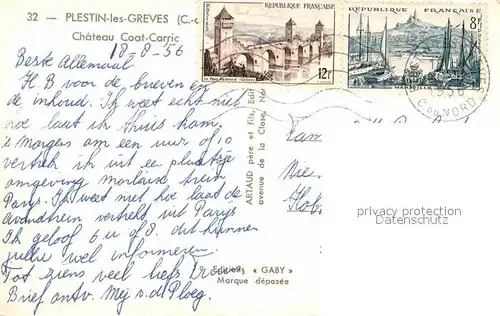 32 — PLESTIN-les-GREVES (C.-
Château Coat-Carric
18-8-56
Beste Allemaal
H.B voor de brieven en
de inhoud. Ik weet echt niet
hoe laat ik thuis kom.
's Morgens om een uur of 10
vertrek ik uit een plaatsje
omgeving morlaix trein
Parijs. Ik weet niet hoe laat de
Avondtrein vertrekt uit Parijs
Ik geloof 6 u of 8. dit kunnen
jullie wel informeren.
Tot ziens veel liefs
Brief antv. Mej v.d. Ploeg.
ARTAUD père et fils, Edit
avenue de la Close,
Editions « GABY »
Marque déposée
REPUBLIQUE FRANÇAISE
12f
REPUBLIQUE FRANÇAISE
8F
MARSEILLE
C. DU NORD
privacy protection
Datenschutz